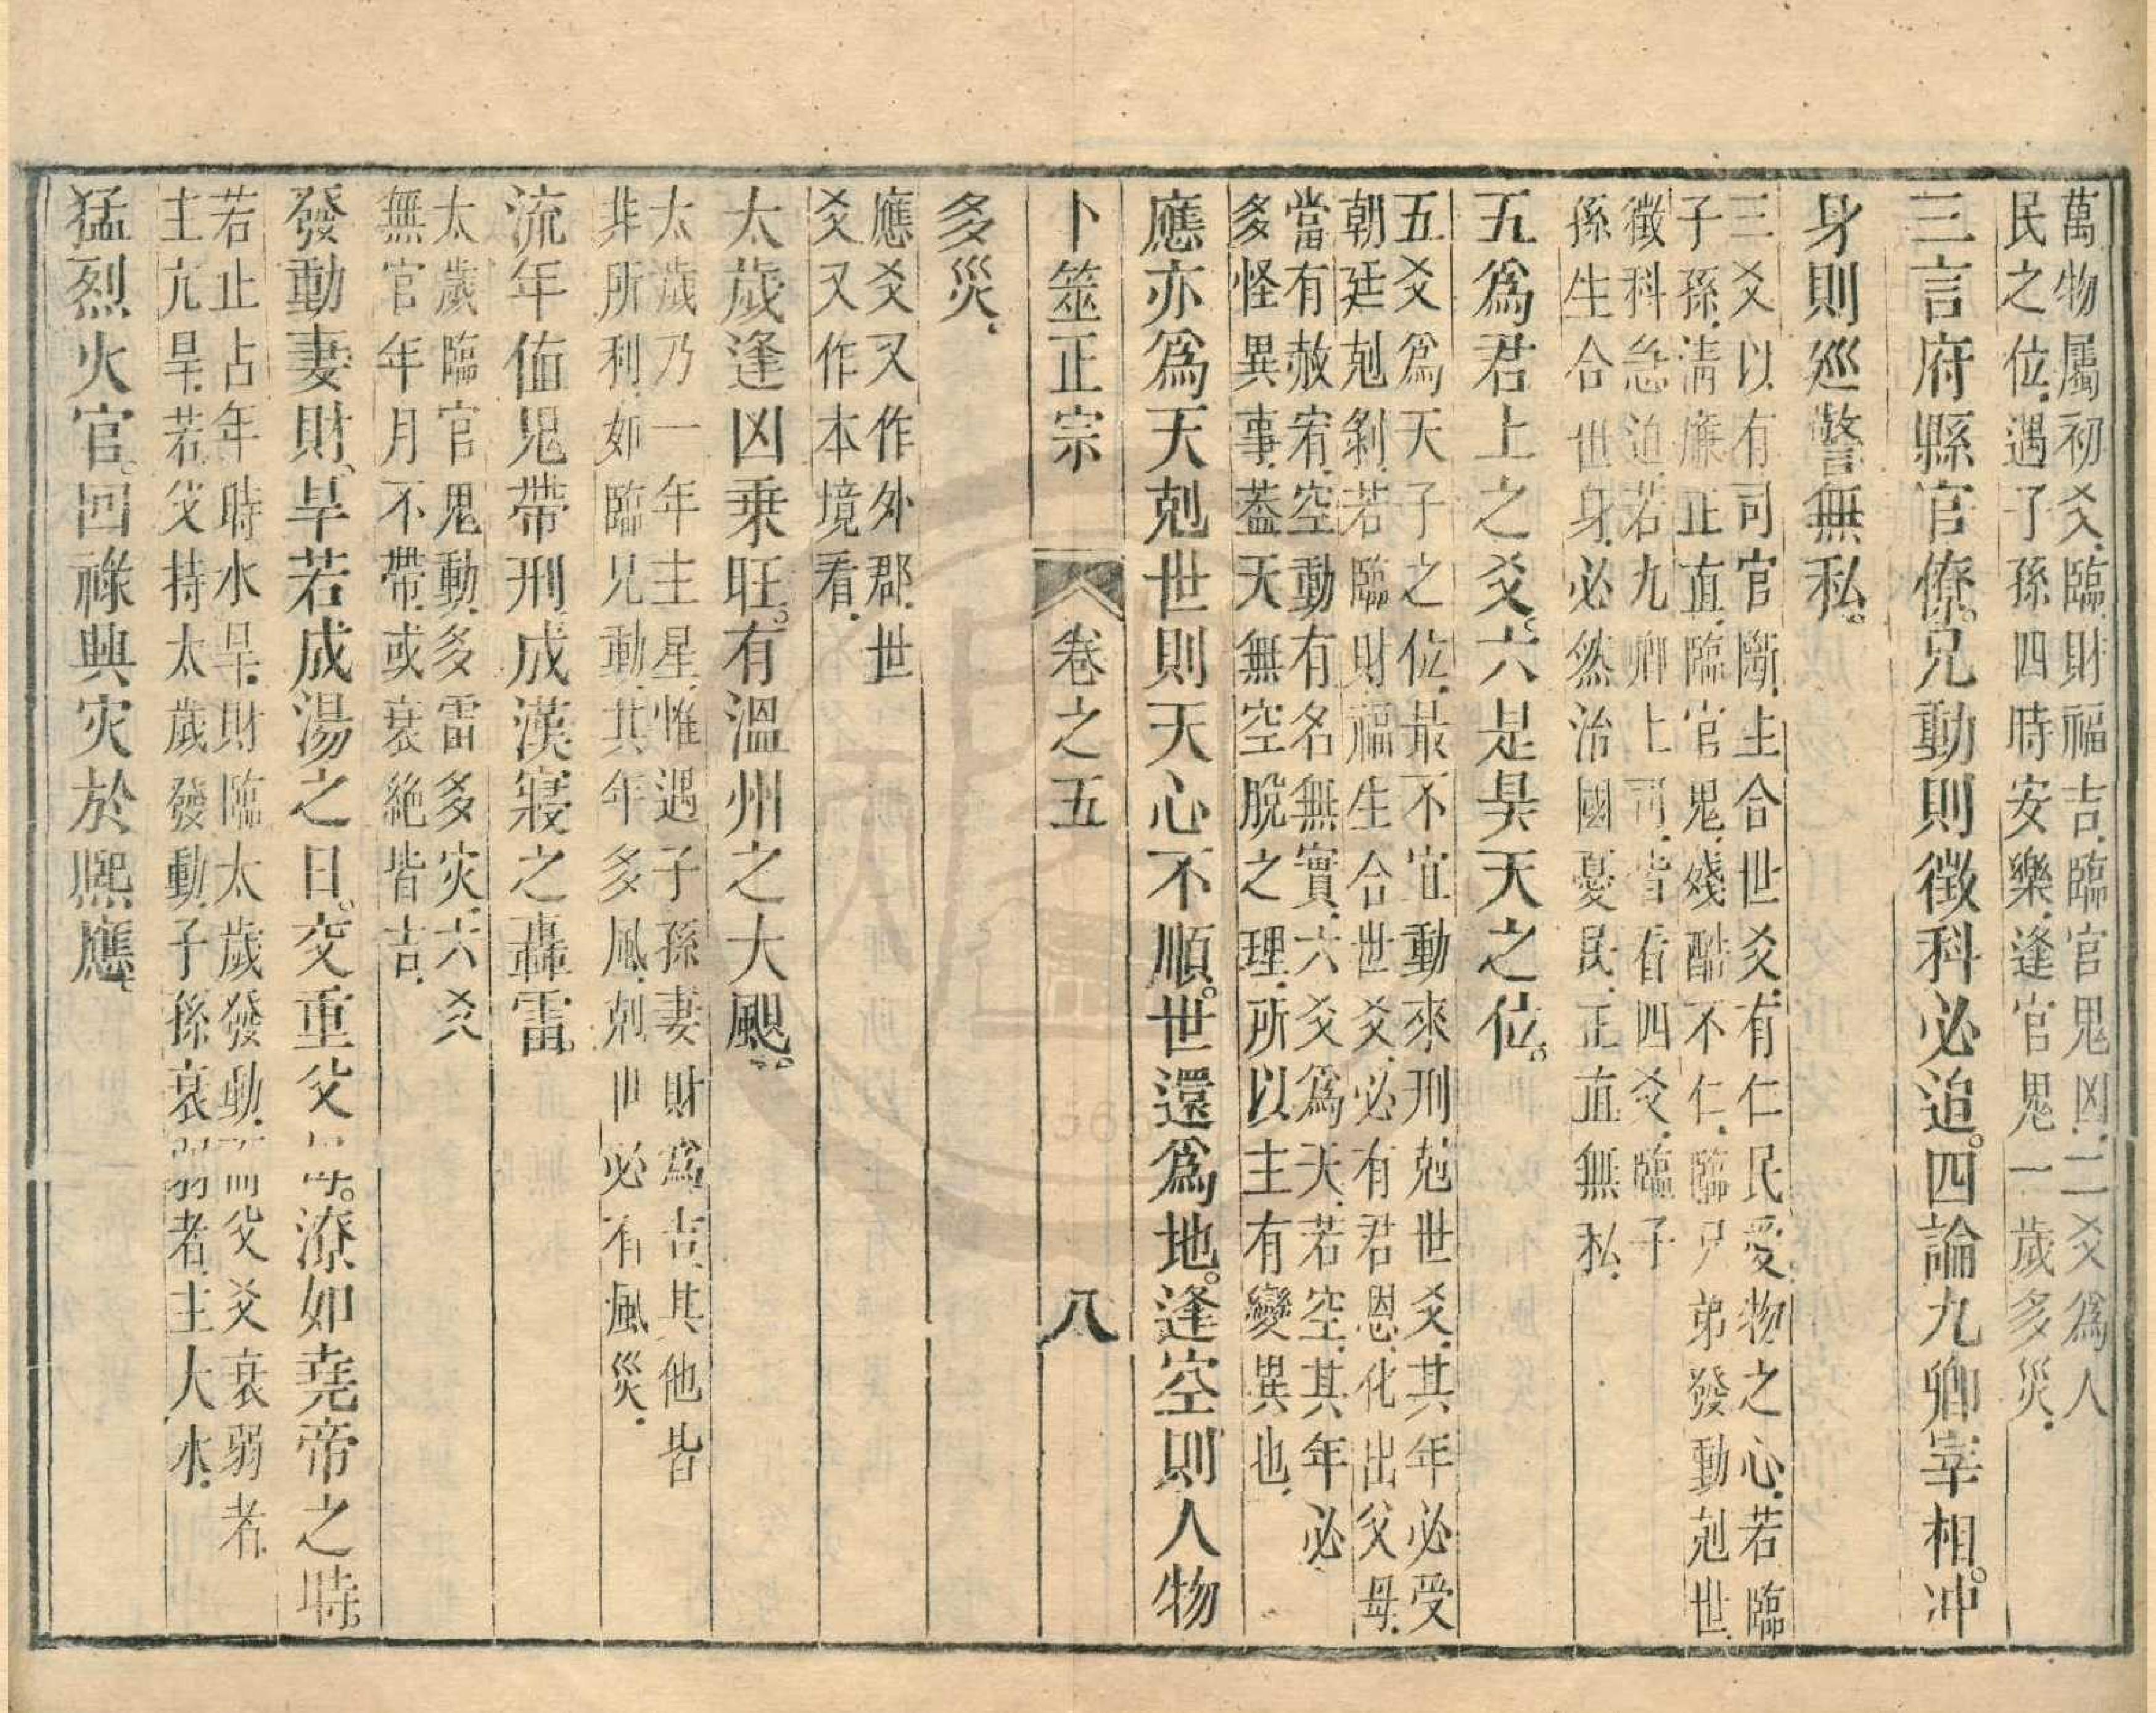 萬物屬初爻.臨財福吉.臨官鬼凶.二爻爲人
民之位.遇子孫四時安樂.逢官鬼一歲多災.
三言府縣官僚。兄動則徵科必追。四論九卿宰相。冲
身則巡警無私。
三爻以有司官斷.生合世爻.有仁民受物之心.若臨
子孫.清廉正直.臨官鬼.殘酷不仁.臨兄弟發動剋世.
徵科急迫.若九卿上司.皆看四爻.臨子
孫生合世身.必然治國憂民.正直無私.
五爲君上之爻。六是昊天之位。
五爻爲天子之位.最不宜動來刑剋世爻.其年必受
朝廷剋剝.若臨財福生合世爻.必有君恩.化出父母.
當有赦宥.空動有名無實.六爻爲天.若空.其年必
多怪異事.蓋天無空脫之理.所以主有變異也.
應亦爲天剋世則天心不順。世還爲地。逢空則人物
卜筮正宗 卷之五 八
多災.
應爻又作外郡.世
爻又作本境看.
太歲逢凶乗旺。有溫州之大颶。
太歲乃一年主星.惟遇子孫妻財爲吉.其他皆
非所利.如臨兄動.其年多風.剋世必有風災.
流年値鬼帶刑。成漢寢之轟雷。
太歲臨官鬼動.多雷多灾.六爻
無官.年月不帶.或衰絶皆吉.
發動妻財。旱若成湯之日。交重父母。潦如堯帝之時。
若止占年時水旱.財臨太歲發動.而父爻衰弱者.
主亢旱.若父持太歲發動.子孫衰弱者.主大水.
猛烈火官。回祿興灾於熙應。